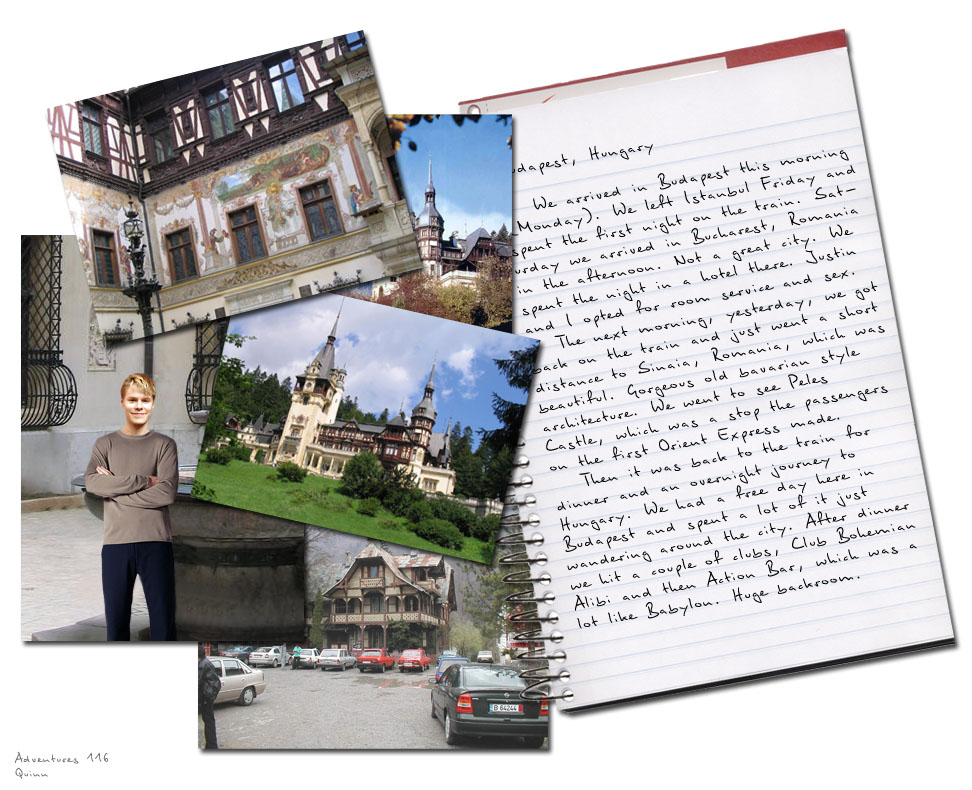 udapest, Hungary
We arrived in Budapest this morning
Monday). We left Istanbul Friday and
spent the first night on the train. Sat-
urday we arrived in Bucharest, Romania
in the afternoon. Not a great city. We
spent the night in a hotel there. Justin
and I opted for room service and sex.
The next morning, yesterday, we got
back on the train and just went a short
distance to Sinaia, Romania, which was
beautiful. Gorgeous old bavarian style
architecture. We went to see Peles
Castle, which was a stop the passengers
on the first Orient Express made.
Then it was back to the train for
dinner and an overnight journey to
Hungary. We had a free day here in
Budapest and spent a lot of it just
wandering around the city. After dinner
we hit a couple of clubs, Club Bohemian
Alibi and then Action Bar, which was a
lot like Babylon. Huge backroom.
B 64244
Adventures 116
Quinn